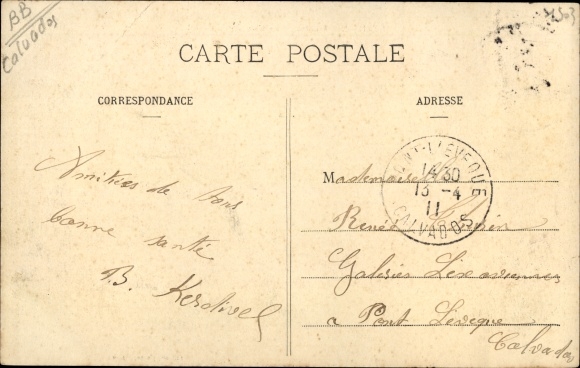 BB
Calvados
CARTE POSTALE
CORRESPONDANCE
ADRESSE
Amitiés de tous
bonne santé
B. Kerdivel
PONT-L'EVEQUE
14 30
13 -4
11
CALVADOS
Mademoiselle
Renée
Galeries Lexoviennes
a Pont Leveque
Calvados